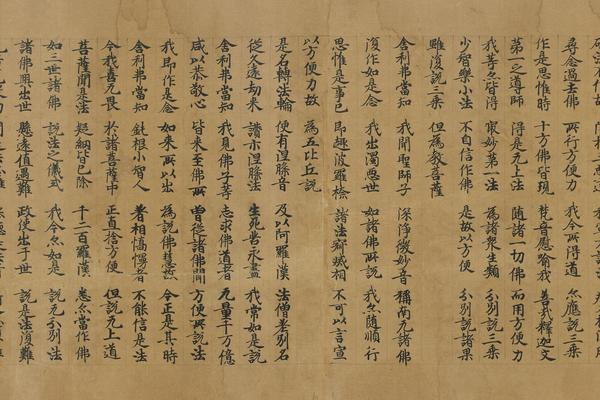 尋念過去佛 所行方便力 我今所得道 亦應說三乘
作是思惟時 十方佛皆現 梵音慰喻我 善哉釋迦文
第一之導師 得是无上法 隨諸一切佛 而用方便力
我等亦皆得 最妙第一法 為諸眾生類 分別說三乘
少智樂小法 不自信作佛 是故以方便 分別說諸果
雖復說三乘 但為教菩薩
舍利弗當知 我聞聖師子 深淨微妙音 稱南无諸佛
復作如是念 我出濁惡世 如諸佛所說 我亦隨順行
思惟是事已 即趣波羅㮈 諸法寂滅相 不可以言宣
以方便力故 為五比丘說
是名轉法輪 便有涅槃音 及以阿羅漢 法僧差別名
從久遠劫來 讚示涅槃法 生死苦永盡 我常如是說
舍利弗當知 我見佛子等 志求佛道者 无量千万億
咸以恭敬心 皆來至佛所 曾從諸佛聞 方便所說法
我即作是念 如來所以出 為說佛慧故 今正是其時
舍利弗當知 鈍根小智人 著相憍慢者 不能信是法
今我喜无畏 於諸菩薩中 正直捨方便 但說无上道
菩薩聞是法 疑網皆已除 千二百羅漢 悉亦當作佛
如三世諸佛 說法之儀式 我今亦如是 說无分別法
諸佛興出世 懸遠值遇難 政使出于世 說是法復難